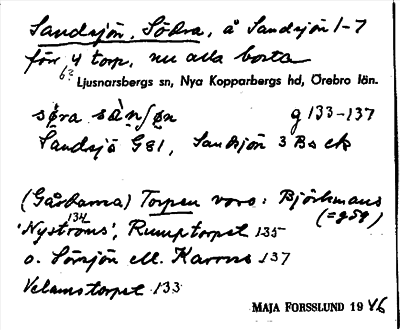 Sandsjön, Södra, å Sandsjön 1-7
förr 4 torp, nu alla borta
6?
Ljusnarsbergs sn, Nya Kopparbergs hd, Örebro län.
g 133-137
Sandsjö G81, Sandsjön 3 Bs ek
(Gårdarna) Torpen voro: Björkmans
(=g59)
'Nyströms', 134 Rumptorpet 135
o. Sörsjön ell. Karons 137
Velamstorpet 133
MAJA FORSSLUND 1946